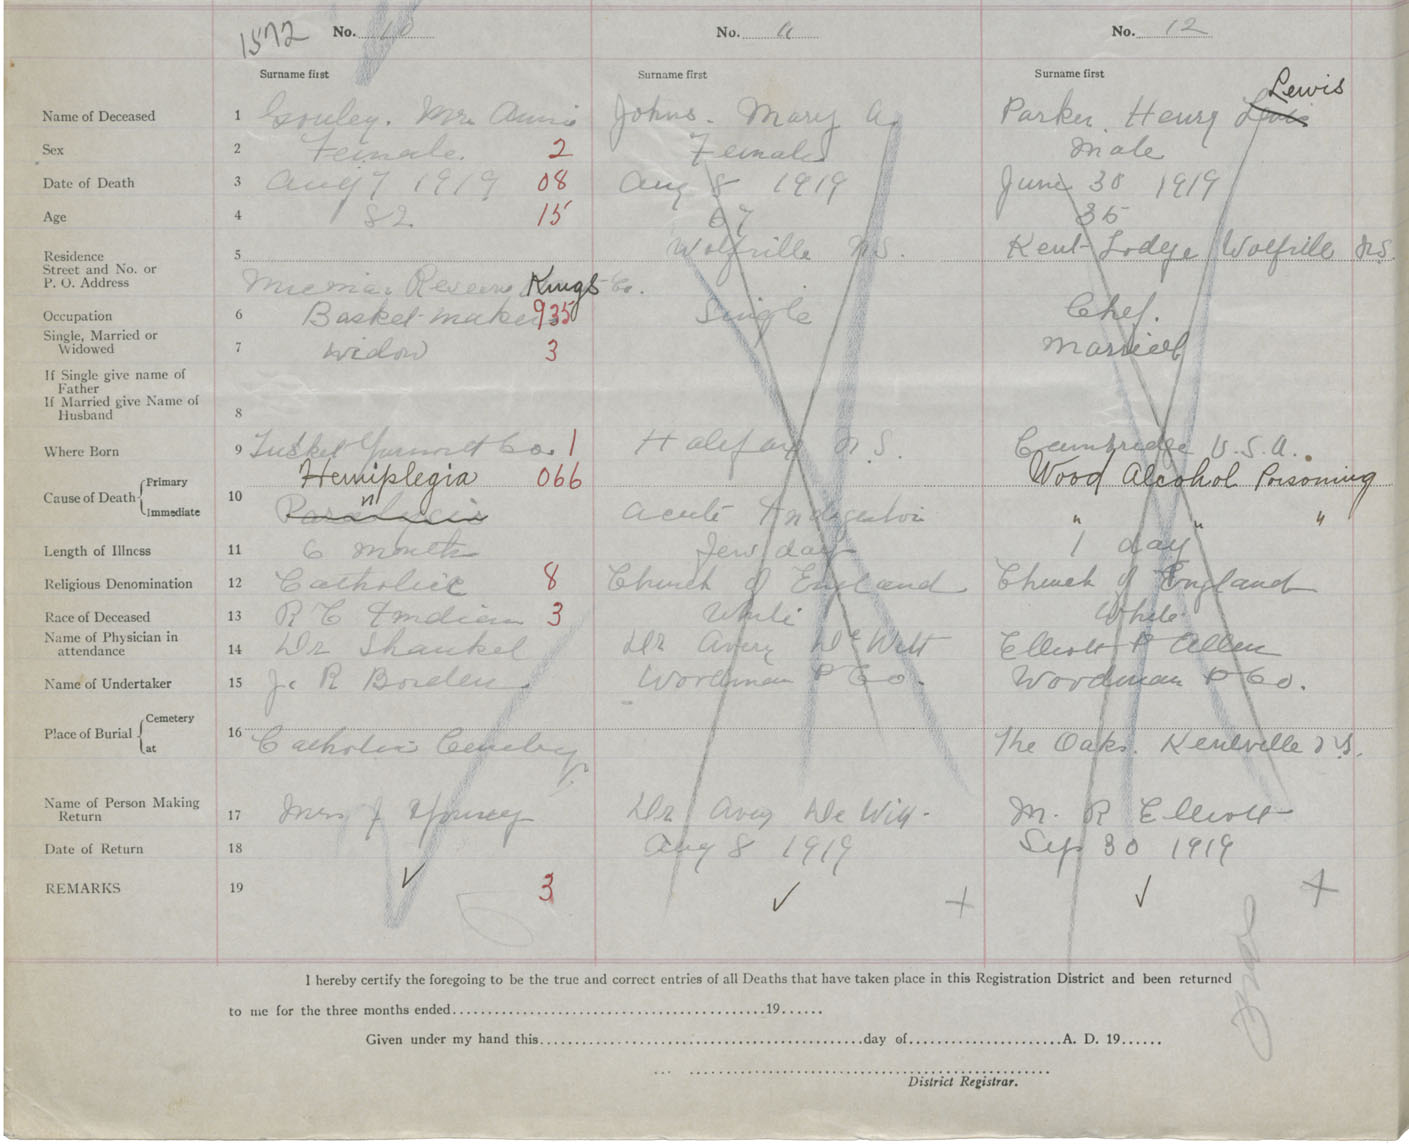 1572 No. 10 No. 11 No. 12
Surname first Surname first Surname first
Lewis
Name of Deceased 1 Gouley. Mrs Annie Johns. Mary A. Parker. Henry
Sex 2 Female. 2 Female Male
Date of Death 3 Aug 7 1919 08 Aug 8 1919 June 30 1919
Age 4 82 15 67 35
Residence 5 Wolfville N.S. Kent Lodge Wolfville N.S.
Street and No. or
P. O. Address Micmac Reserve Kings Co.
Occupation 6 Basket-maker 935 Single Chef.
Single, Married or
Widowed 7 Widow 3 Married
If Single give name of
Father
If Married give Name of
Husband 8
Where Born 9 Tusket Yarmouth Co. 1 Halifax N.S. Cambridge U.S.A.
Hemiplegia 066 Wood Alcohol Poisoning
Cause of Death Primary
Immediate 10 Paralysis Acute Indigestion " " "
Length of Illness 11 6 months Few days 1 day
Religious Denomination 12 Catholic 8 Church of England Church of England
Race of Deceased 13 R C Indian 3 White White
Name of Physician in
attendance 14 Dr Shankel Dr Avery DeWitt Elliott & Allen
Name of Undertaker 15 J. R Borden. Woodman & Co. Woodman & Co.
Place of Burial Cemetery
at 16 Catholic Cemetery The Oaks. Kentville N.S.
Name of Person Making
Return 17 Mrs J Dr Avery De Witt. M. R Elliott
Date of Return 18 Aug 8 1919 Sep 30 1919
REMARKS 19 3
I hereby certify the foregoing to be the true and correct entries of all Deaths that have taken place in this Registration District and been returned
to me for the three months ended........19......
Given under my hand this........day of........A. D. 19......
District Registrar.